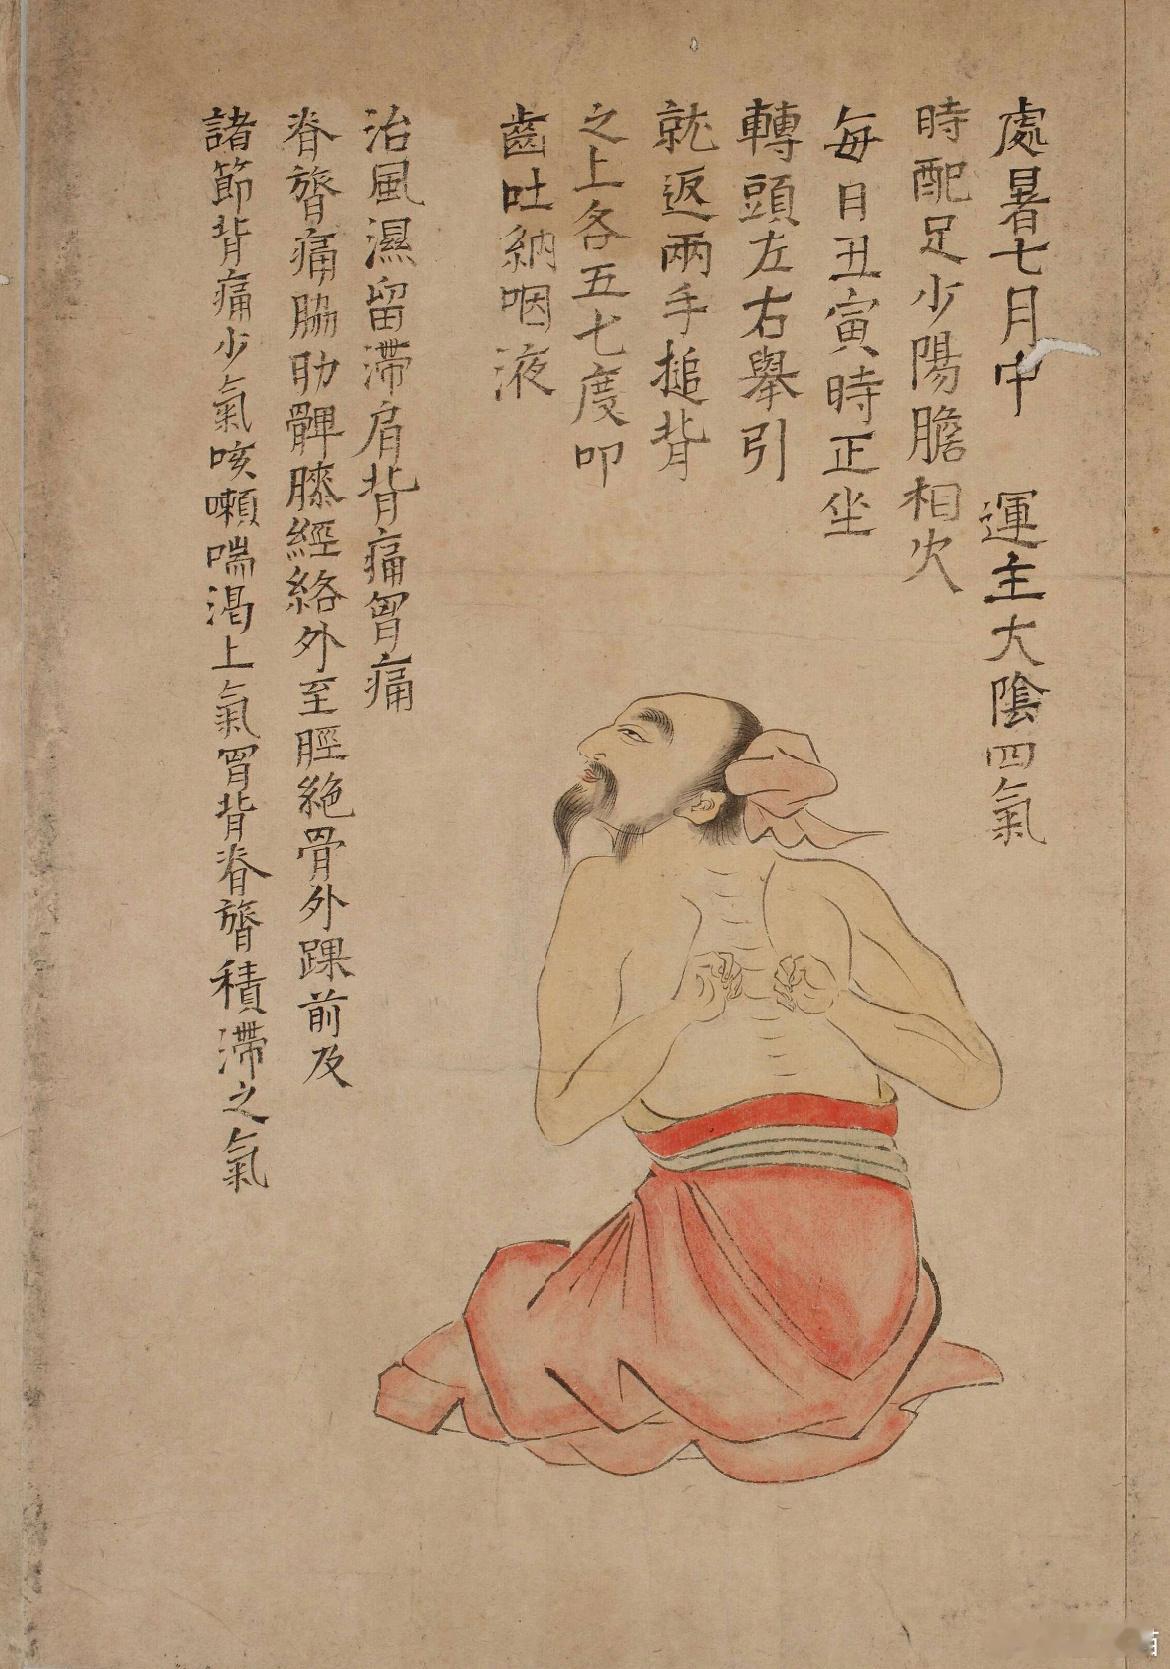 處暑七月中 運主大陰四氣
時配足少陽膽相火
每日丑寅時正坐
轉頭左右舉引
就返兩手搥背
之上各五七度叩
齒吐納咽液
治風濕留滯肩背痛胷痛
脊膂痛脇肋髀膝經絡外至脛絶骨外踝前及
諸節背痛少氣咳嗽喘渴上氣胷背脊膂積滯之氣